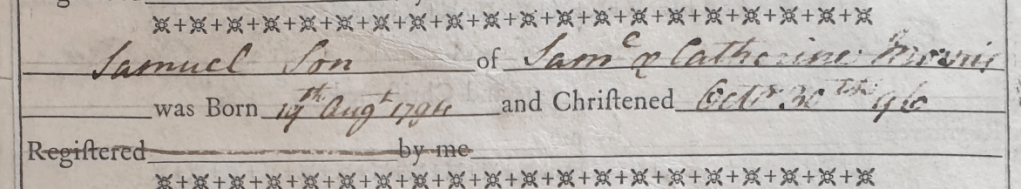 Samuel Son of Sam.l & Catherine Morris
was Born 19th Augt 1794 and Chriſtened Octr. 30th 96
Regiſtered by me